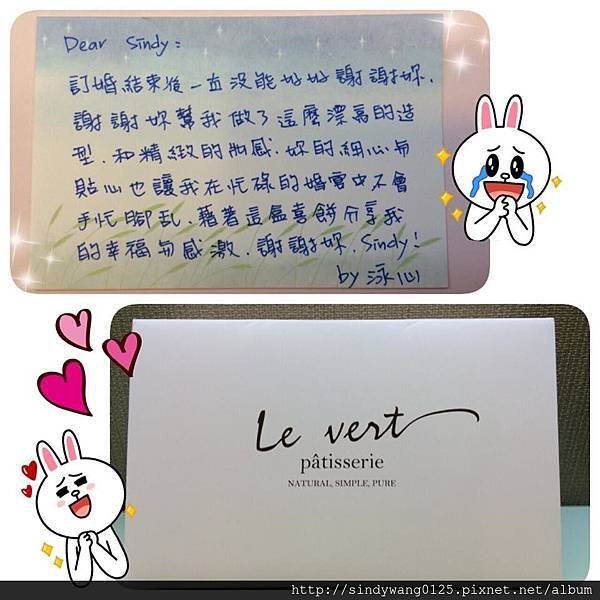 Dear Sindy:
訂婚結束後一直沒能好好謝謝妳.
謝謝妳幫我做了這麼漂亮的造
型.和精緻的妝感.妳的細心与
貼心也讓我在忙碌的婚宴中不會
手忙腳乱.藉著這盒喜餅分享我
的幸福与感激.謝謝妳.Sindy!
by 泳心
Le vert
pâtisserie
NATURAL, SIMPLE, PURE
http://sindywang0125.pixnet.net/album